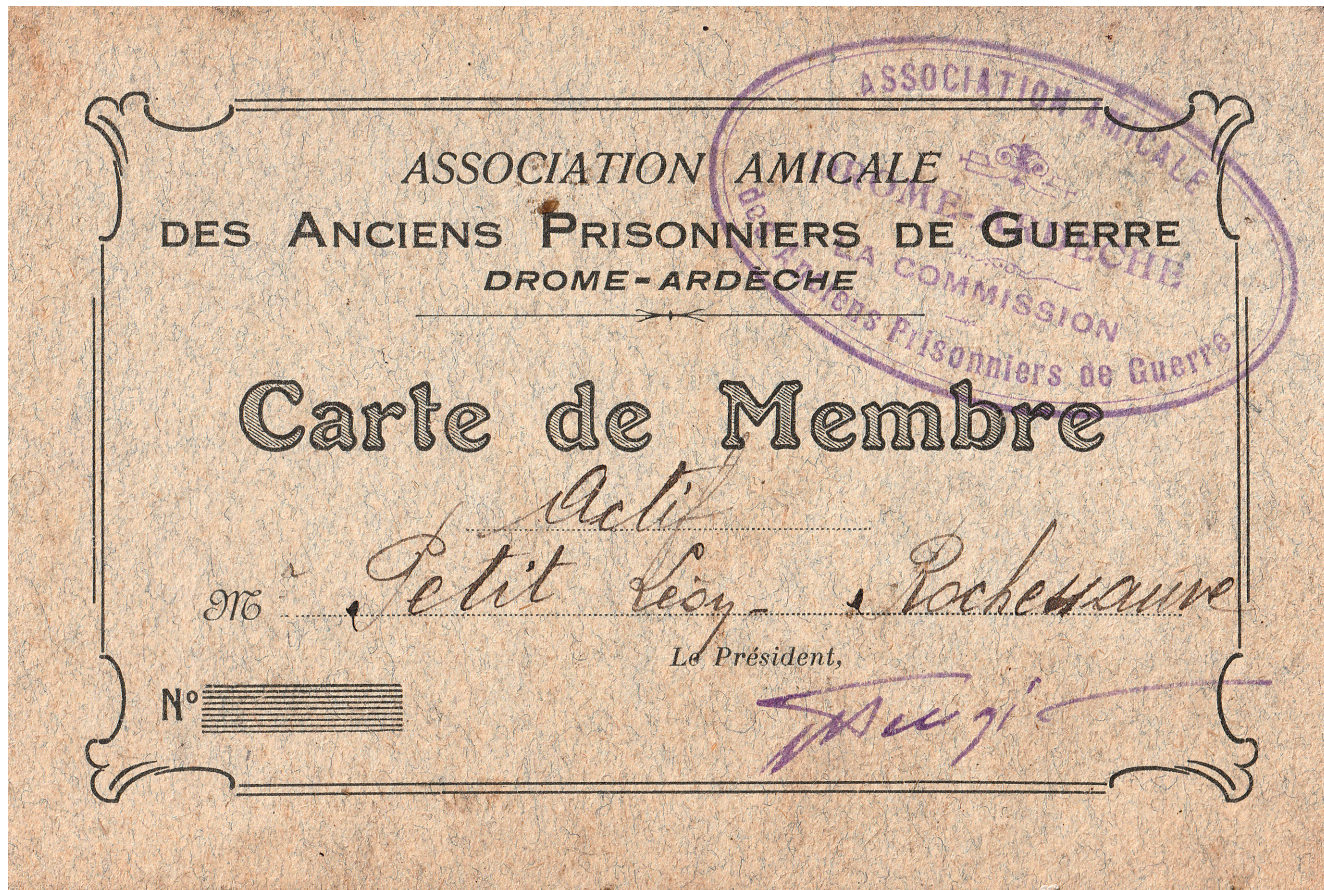 ASSOCIATION AMICALE
DES ANCIENS PRISONNIERS DE GUERRE
DROME-ARDÈCHE
ASSOCIATION AMICALE
DROME-ARDÈCHE
LA COMMISSION
des Anciens Prisonniers de Guerre
Carte de Membre
Actif
M à Petit Léon - Rochessauve
Le Président,
Nº